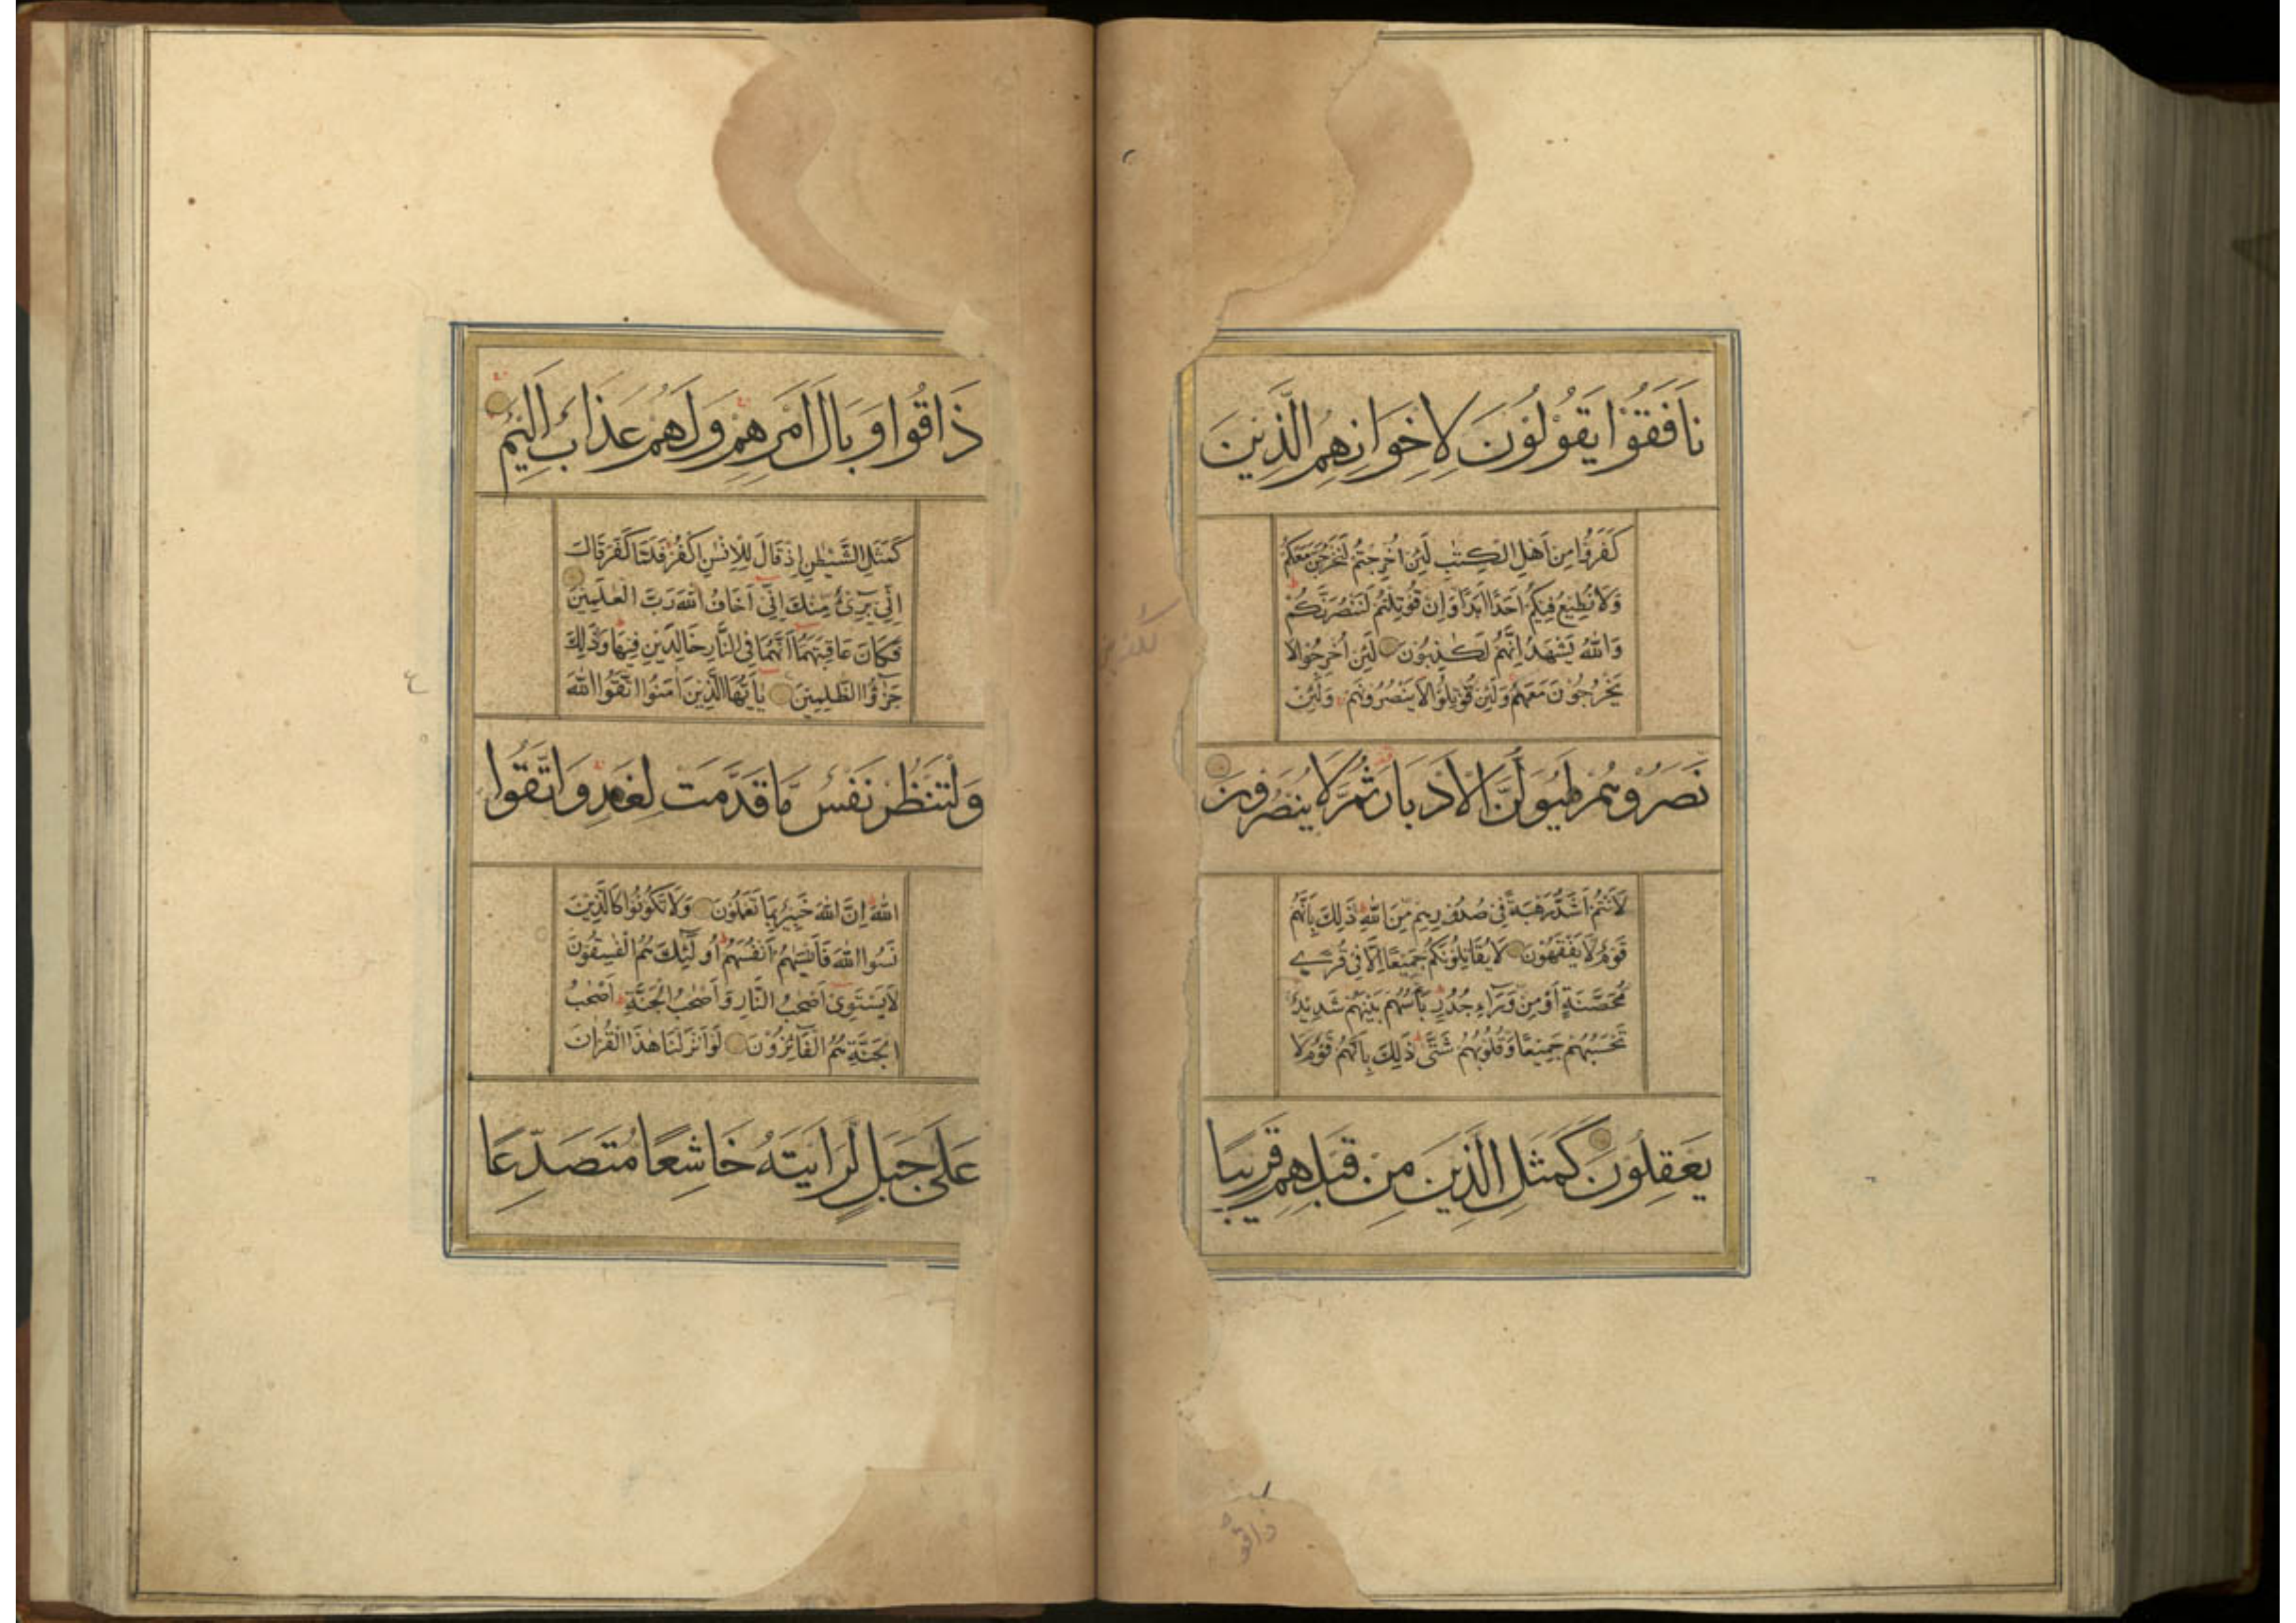 نَافَقُوْا يَقُوْلُوْنَ لِاِخْوَانِهِمُ الَّذِيْنَ
كَفَرُوْا مِنْ اَهْلِ الْكِتٰبِ لَئِنْ اُخْرِجْتُمْ لَنَخْرُجَنَّ مَعَكُمْ
وَلَا نُطِيْعُ فِيْكُمْ اَحَدًا اَبَدًا وَاِنْ قُوْتِلْتُمْ لَنَنْصُرَنَّكُمْ
وَاللّٰهُ يَشْهَدُ اِنَّهُمْ لَكٰذِبُوْنَ لَئِنْ اُخْرِجُوْا لَا
يَخْرُجُوْنَ مَعَهُمْ وَلَئِنْ قُوْتِلُوْا لَا يَنْصُرُوْنَهُمْ وَلَئِنْ
نَّصَرُوْهُمْ لَيُوَلُّنَّ الْاَدْبَارَ ثُمَّ لَا يُنْصَرُوْنَ
لَاَنْتُمْ اَشَدُّ رَهْبَةً فِيْ صُدُوْرِهِمْ مِّنَ اللّٰهِ ذٰلِكَ بِاَنَّهُمْ
قَوْمٌ لَّا يَفْقَهُوْنَ لَا يُقَاتِلُوْنَكُمْ جَمِيْعًا اِلَّا فِيْ قُرًى
مُّحَصَّنَةٍ اَوْ مِنْ وَّرَآءِ جُدُرٍ بَاْسُهُمْ بَيْنَهُمْ شَدِيْدٌ
تَحْسَبُهُمْ جَمِيْعًا وَّقُلُوْبُهُمْ شَتّٰى ذٰلِكَ بِاَنَّهُمْ قَوْمٌ لَا
يَعْقِلُوْنَ كَمَثَلِ الَّذِيْنَ مِنْ قَبْلِهِمْ قَرِيْبًا
ذاقوا
ذَاقُوْا وَبَالَ اَمْرِهِمْ وَلَهُمْ عَذَابٌ اَلِيْمٌ
كَمَثَلِ الشَّيْطٰنِ اِذْ قَالَ لِلْاِنْسَانِ اكْفُرْ فَلَمَّا كَفَرَ قَالَ
اِنِّيْ بَرِيْٓءٌ مِّنْكَ اِنِّيْٓ اَخَافُ اللّٰهَ رَبَّ الْعٰلَمِيْنَ
فَكَانَ عَاقِبَتَهُمَآ اَنَّهُمَا فِي النَّارِ خَالِدَيْنِ فِيْهَا وَذٰلِكَ
جَزٰٓؤُا الظّٰلِمِيْنَ يٰٓاَيُّهَا الَّذِيْنَ اٰمَنُوا اتَّقُوا اللّٰهَ
وَلْتَنْظُرْ نَفْسٌ مَّا قَدَّمَتْ لِغَدٍ وَاتَّقُوا
اللّٰهَ اِنَّ اللّٰهَ خَبِيْرٌ بِمَا تَعْمَلُوْنَ وَلَا تَكُوْنُوْا كَالَّذِيْنَ
نَسُوا اللّٰهَ فَاَنْسٰهُمْ اَنْفُسَهُمْ اُولٰٓئِكَ هُمُ الْفٰسِقُوْنَ
لَا يَسْتَوِيْٓ اَصْحٰبُ النَّارِ وَاَصْحٰبُ الْجَنَّةِ اَصْحٰبُ
الْجَنَّةِ هُمُ الْفَآئِزُوْنَ لَوْ اَنْزَلْنَا هٰذَا الْقُرْاٰنَ
عَلٰى جَبَلٍ لَّرَاَيْتَهُ خَاشِعًا مُتَصَدِّعًا